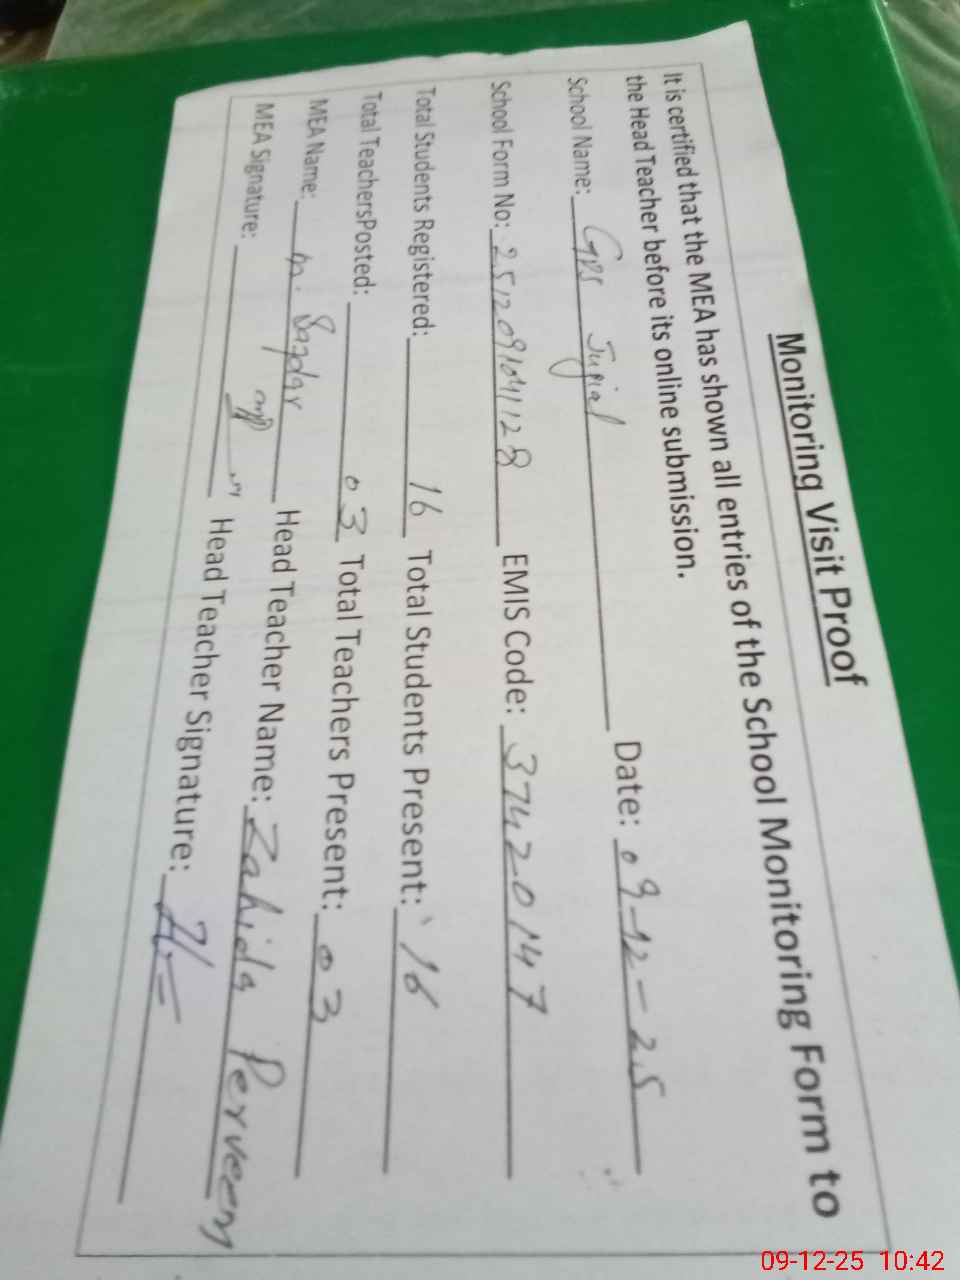 Monitoring Visit Proof
It is certified that the MEA has shown all entries of the School Monitoring Form to
the Head Teacher before its online submission.
School Name: GPS Jugial Date: 09-12-25
School Form No: 2512091041128 EMIS Code: 37420147
Total Students Registered: 16 Total Students Present: 16
Total TeachersPosted: 03 Total Teachers Present: 03
MEA Name: M. Safdar Head Teacher Name: Zahida Perveen
MEA Signature: Head Teacher Signature:
09-12-25 10:42